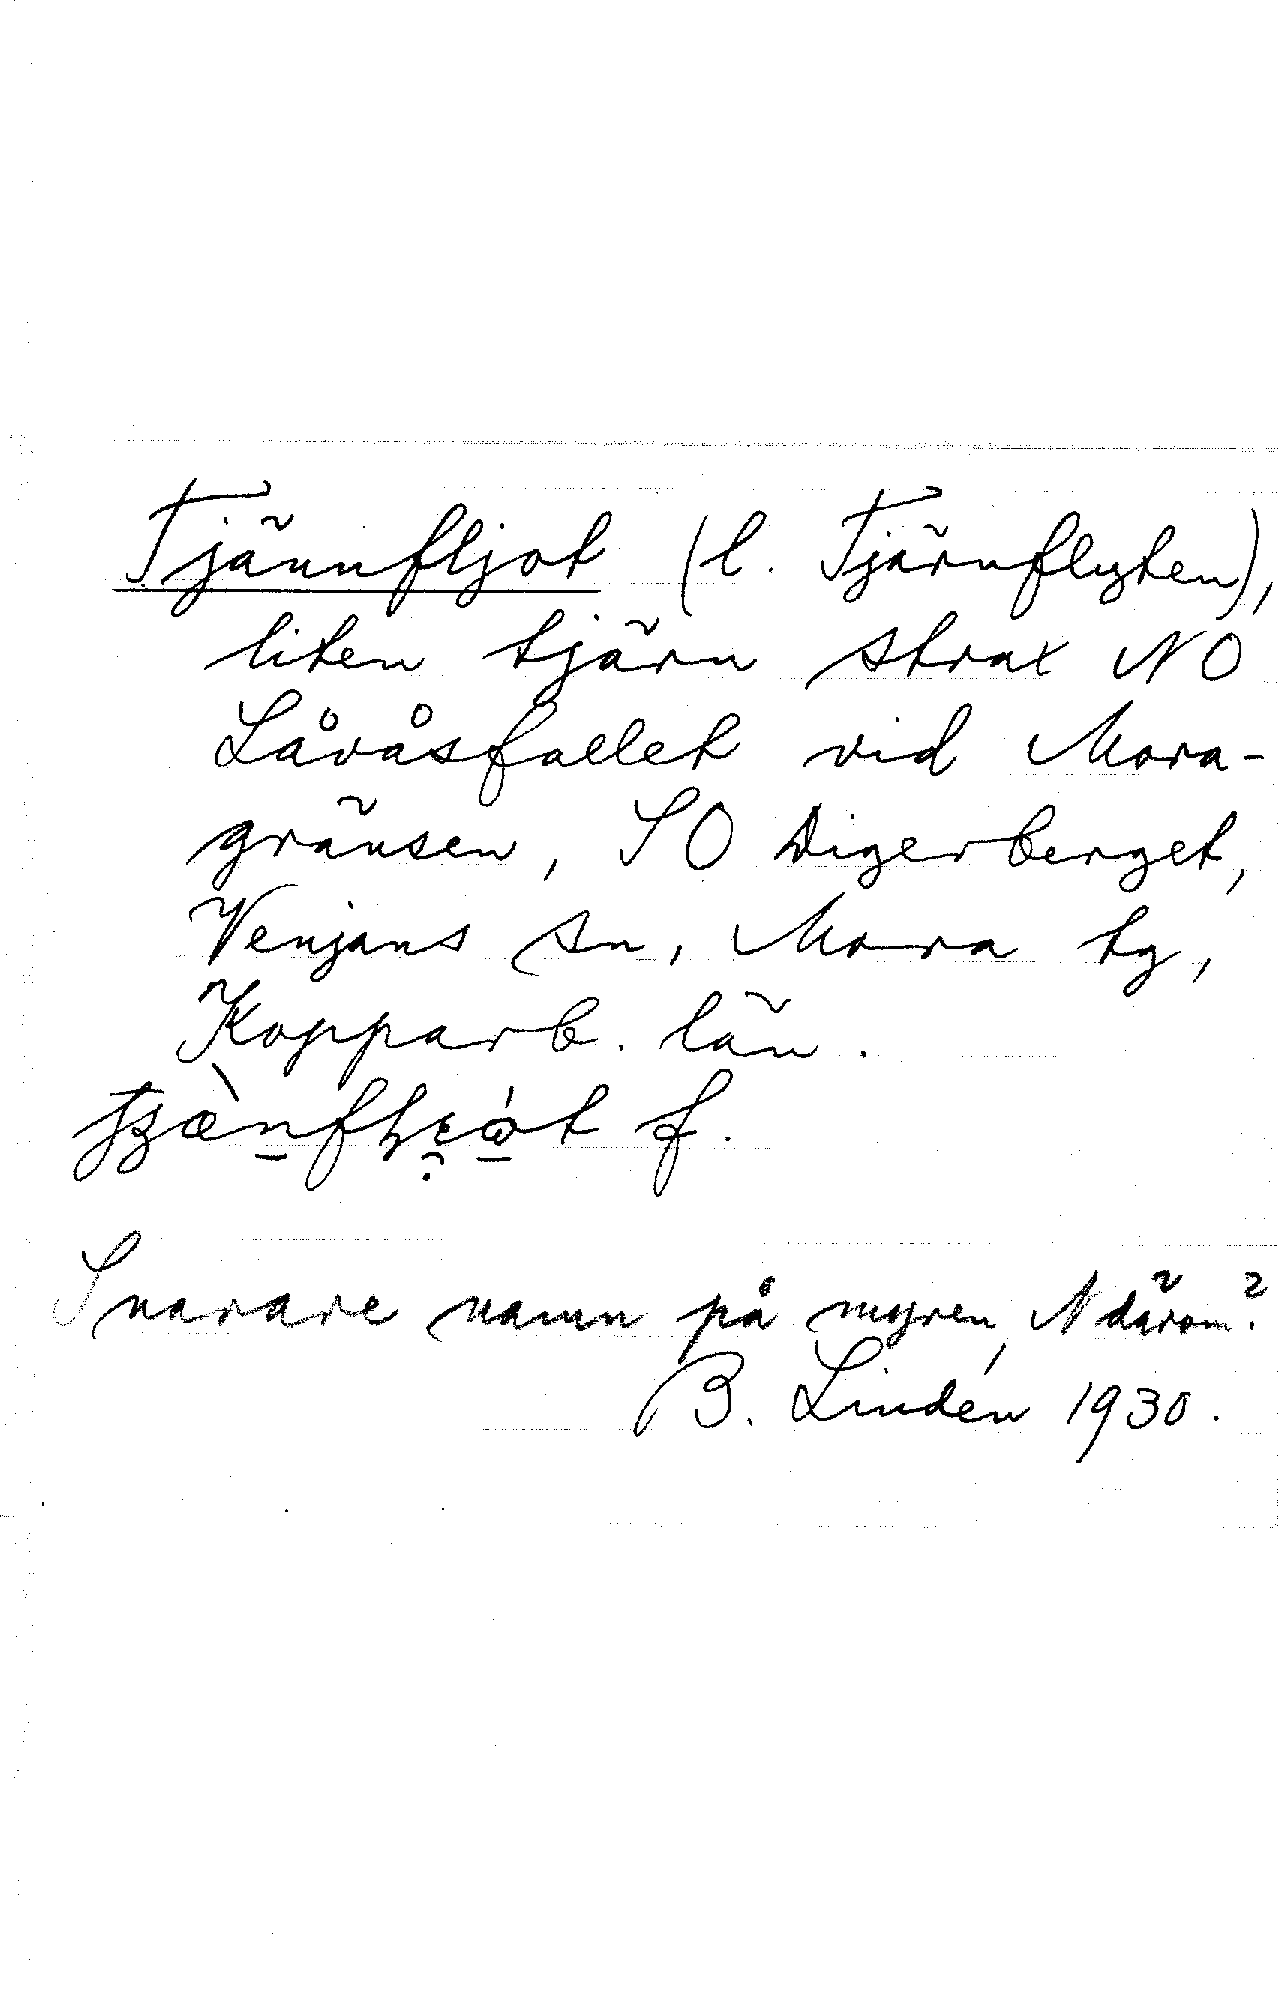 Tjännfljot (l. Tjärnflyten),
liten tjärn strax NO
Låvåsfallet vid Mora-
gränsen, SO Digerberget,
Venjans sn, Mora tg,
Kopparb. län.
f.
Snarare namn på myren, N därom?
B. Lindén 1930.